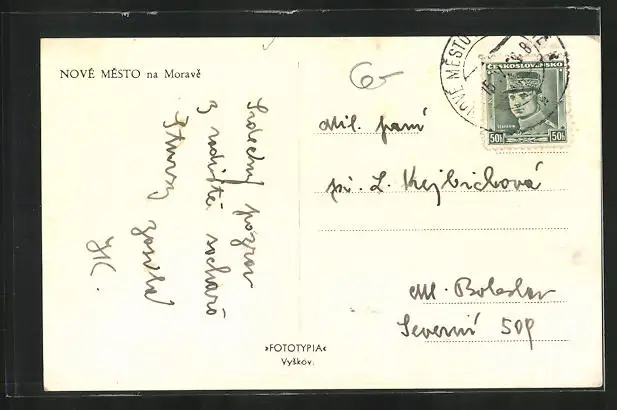 NOVÉ MĚSTO na Moravě
Srdečný pozdrav
z rodiště sochařů
Štursy zasílá
JK.
»FOTOTYPIA«
Vyškov.
NOVÉ MĚSTO
ČESKOSLOVENSKO
50h 50h
Mil. paní
pí. L. Kejbichová
Ml. Boleslav
Severní 509